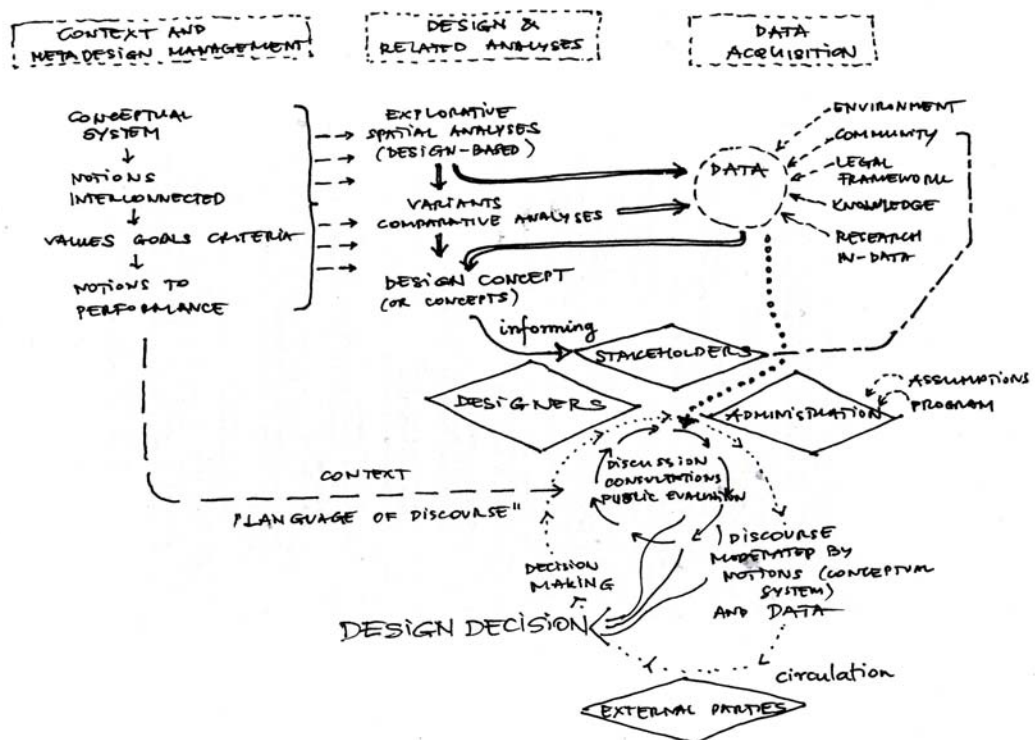 CONTEXT AND
METADESIGN MANAGEMENT
DESIGN &
RELATED ANALYSES
DATA
ACQUISITION
CONCEPTUAL
SYSTEM
NOTIONS
INTERCONNECTED
VALUES GOALS CRITERIA
NOTIONS TO
PERFORMANCE
EXPLORATIVE
SPATIAL ANALYSES
(DESIGN-BASED)
VARIANTS
COMPARATIVE ANALYSES
DESIGN CONCEPT
(OR CONCEPTS)
DATA
ENVIRONMENT
COMMUNITY
LEGAL
FRAMEWORK
KNOWLEDGE
RESEARCH
IN-DATA
informing
STAKEHOLDERS
DESIGNERS
ADMINISTRATION
ASSUMPTIONS
PROGRAM
CONTEXT
"LANGUAGE OF DISCOURSE"
DISCUSSION
CONSULTATIONS
PUBLIC EVALUATION
DISCOURSE
MODERATED BY
NOTIONS (CONCEPTUAL
SYSTEM)
AND DATA
DECISION
MAKING
DESIGN DECISION
circulation
EXTERNAL PARTIES